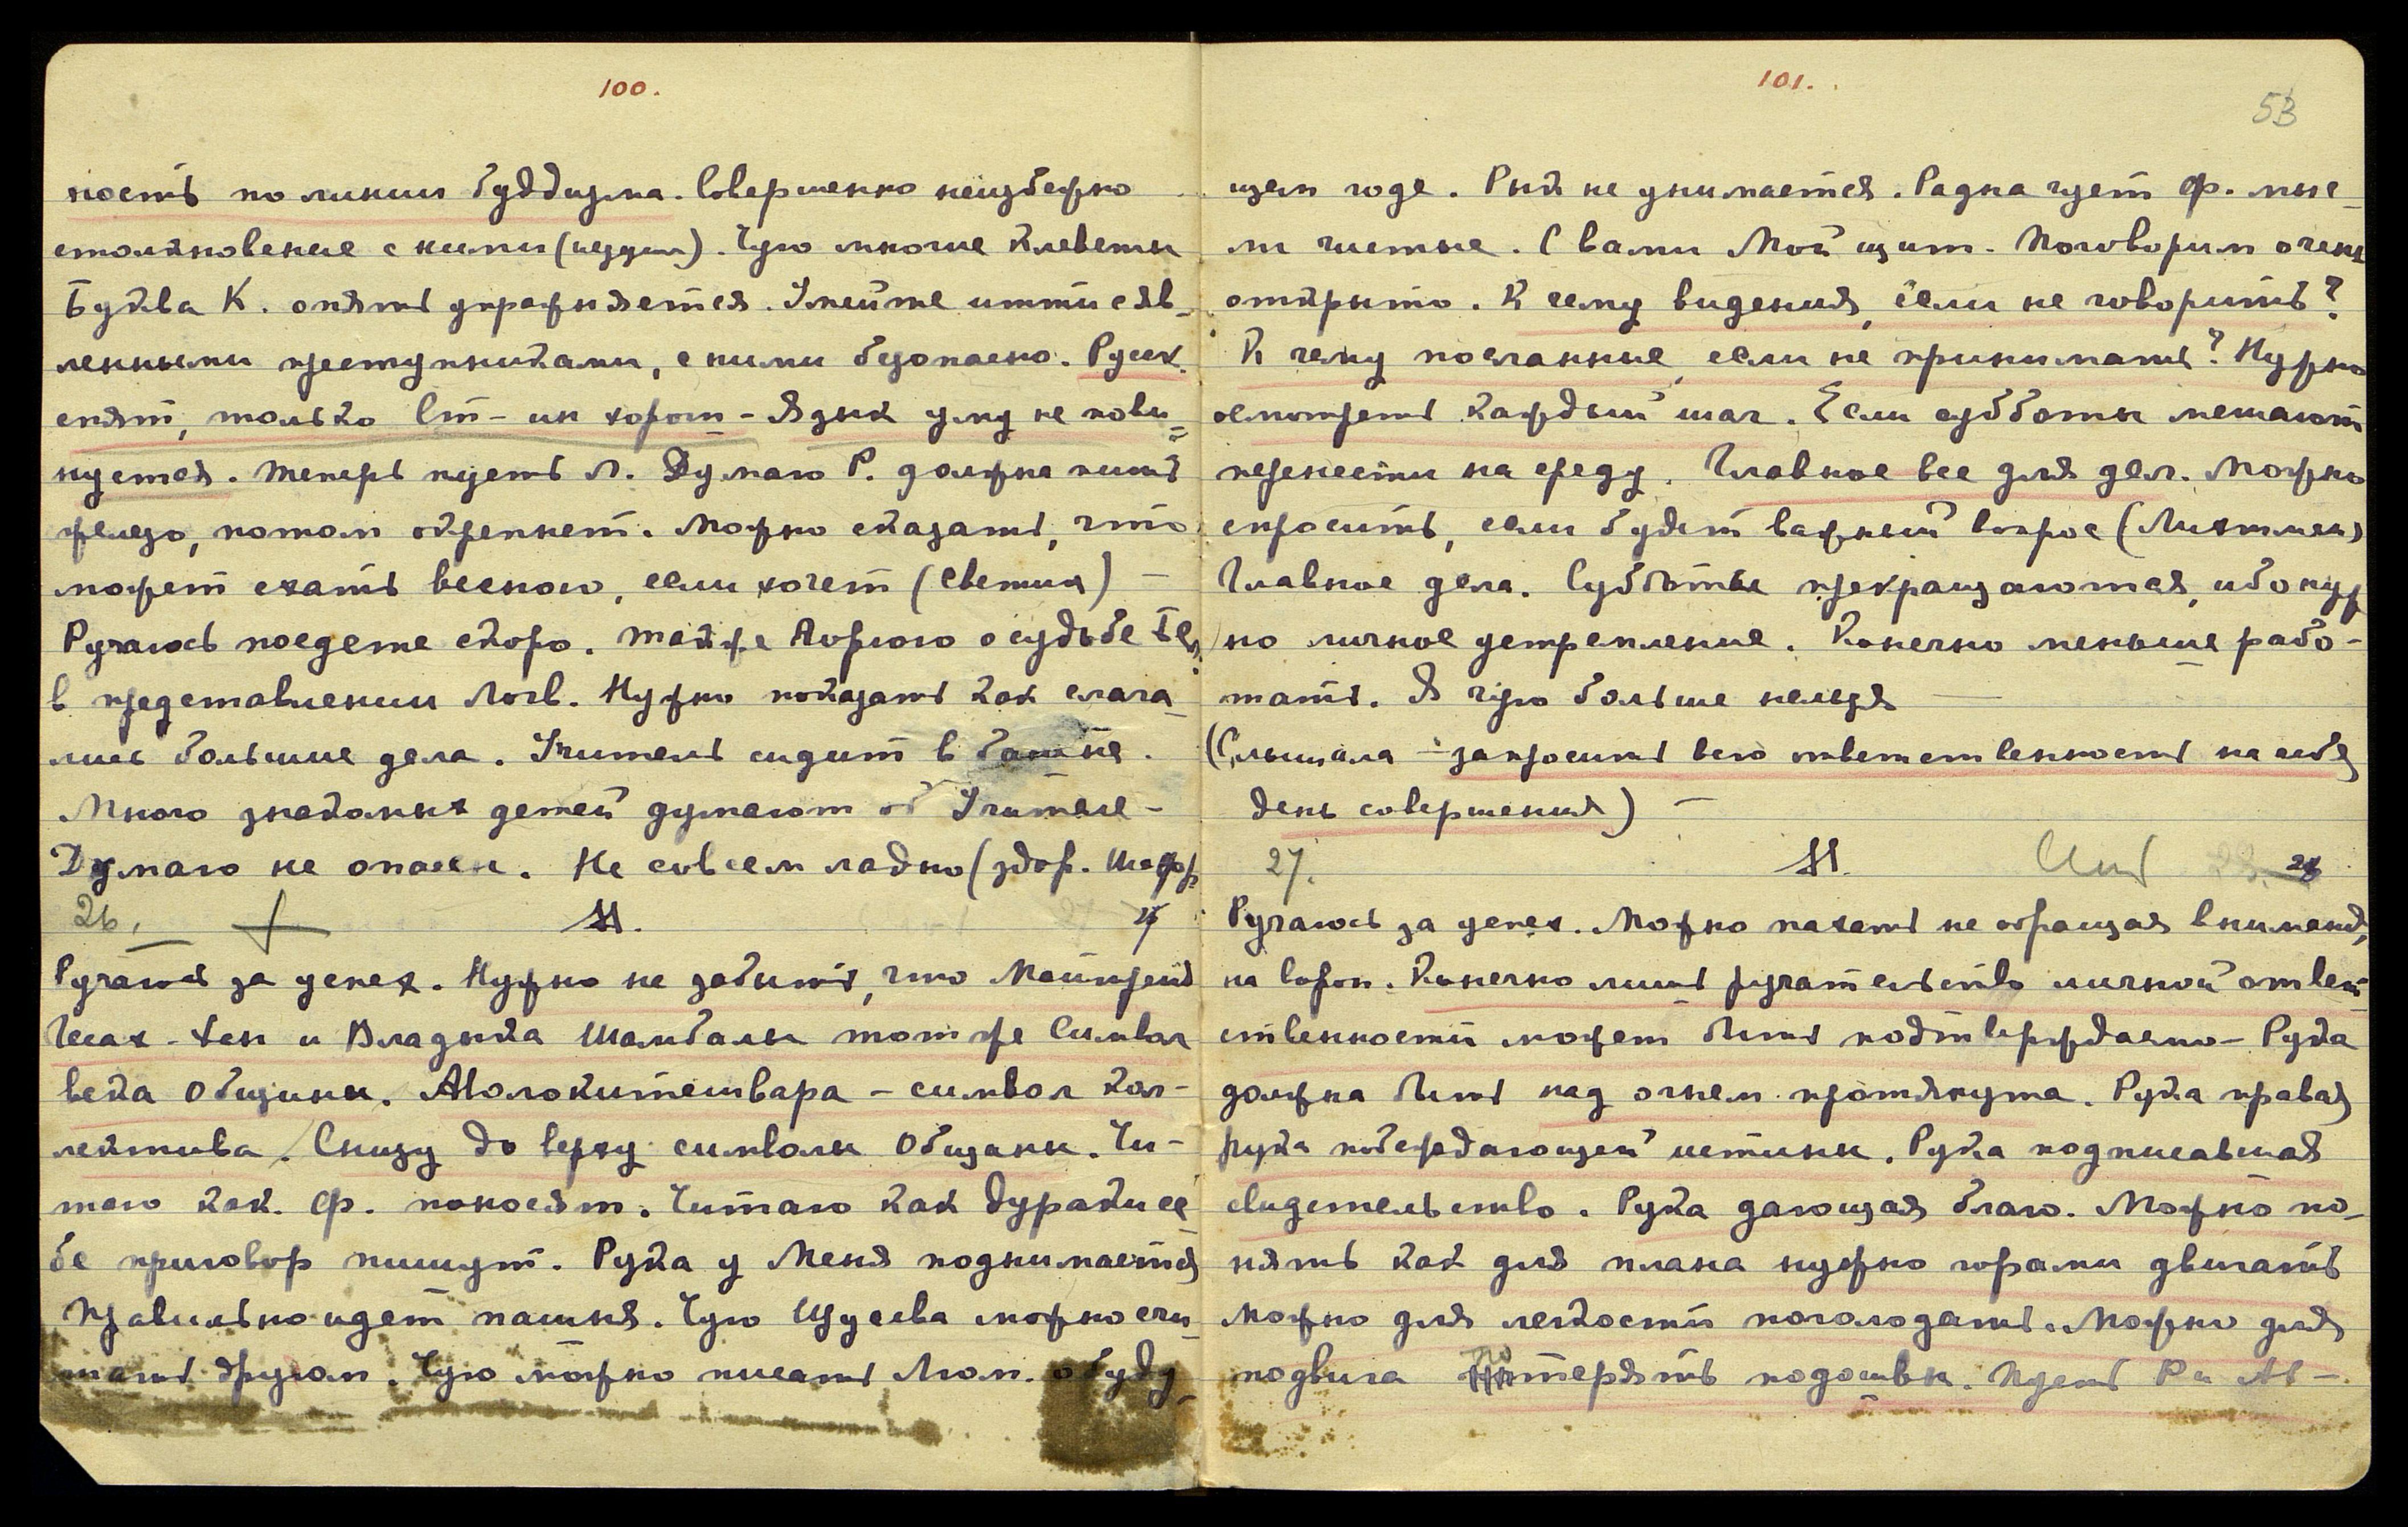 100.
ность по линии буддизма. Совершенно неизбежно
столкновение с ними (иезуит). Чую многие клеветы
Буква К. опять упражняется. Умейте итти с яв-
ленными преступниками, с ними безопасно. Русск.
спят, только Ст-ин хорош - Язык уму не пови-
нуется. Теперь пусть Л. Думаю Р. должна пить
железо, потом окрепнет. Можно сказать, что
может ехать весною, если хочет (Светик) —
Ручаюсь поедете скоро. Также Аорюю о судьбе
в представлении Логв. Нужно показать как слага-
лись большие дела. Учитель сидит в башне.
Много знакомых детей думают об Учителе -
Думаю не опасен. Не совсем ладно (здор. Шафр
26. 27
Ручаюсь за успех. Нужно не забыть, что Майтрейя
Гесар-хан и Владыка Шамбалы тот же Символ
века Общины. Авалокитешвара - символ кол-
лектива. Снизу до верху символы Общины. Чи-
таю как Ф. поносят. Читаю как дураки се-
бе приговор пишут. Рука у Меня поднимается
Правильно идет пашня. Чую Щусева можно счи-
тать другом. Чую можно писать Люм. о буду-
101.
53
щем годе. Рый не унимается. Радна чует Ф. мыс-
ли чистые. С вами Мой щит. Поговорим очень
открыто. К чему видения, если не говорить?
К чему посланные, если не принимать? Нужно
осмотреть каждый шаг. Если субботы мешают
перенести на среду. Главное все для дел. Можно
спросить, если будет важный вопрос (Лихтман)
Главное дела. Субботы прекращаются, ибо нуж
но личное устремление. Конечно меньше рабо-
тать. Я чую больше нельзя —
(Слышала - запросить всю ответственность на себя
день совершения) —
27. 28
Ручаюсь за успех. Можно пахать не обращая внимания,
на ворон. Конечно лишь ручательство личной ответ
ственности может быть подтверждаемо - Рука
должна быть над огнем протянута. Рука правая
рука побеждающей истины. Рука подписавшая
свидетельство. Рука дающая благо. Можно по-
нять как для плана нужно горами двигать
Можно для легкости поголодать. Можно для
подвига потерять подошвы. Пусть Р и Ав -